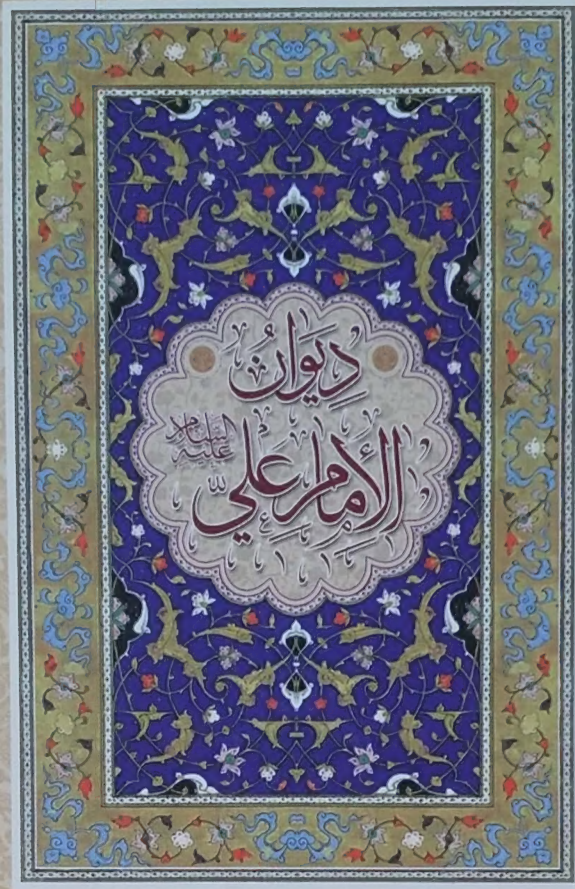 دِيوَانُ
الإِمَامِ عَلِيّ
عَلَيْهِ السَّلَام